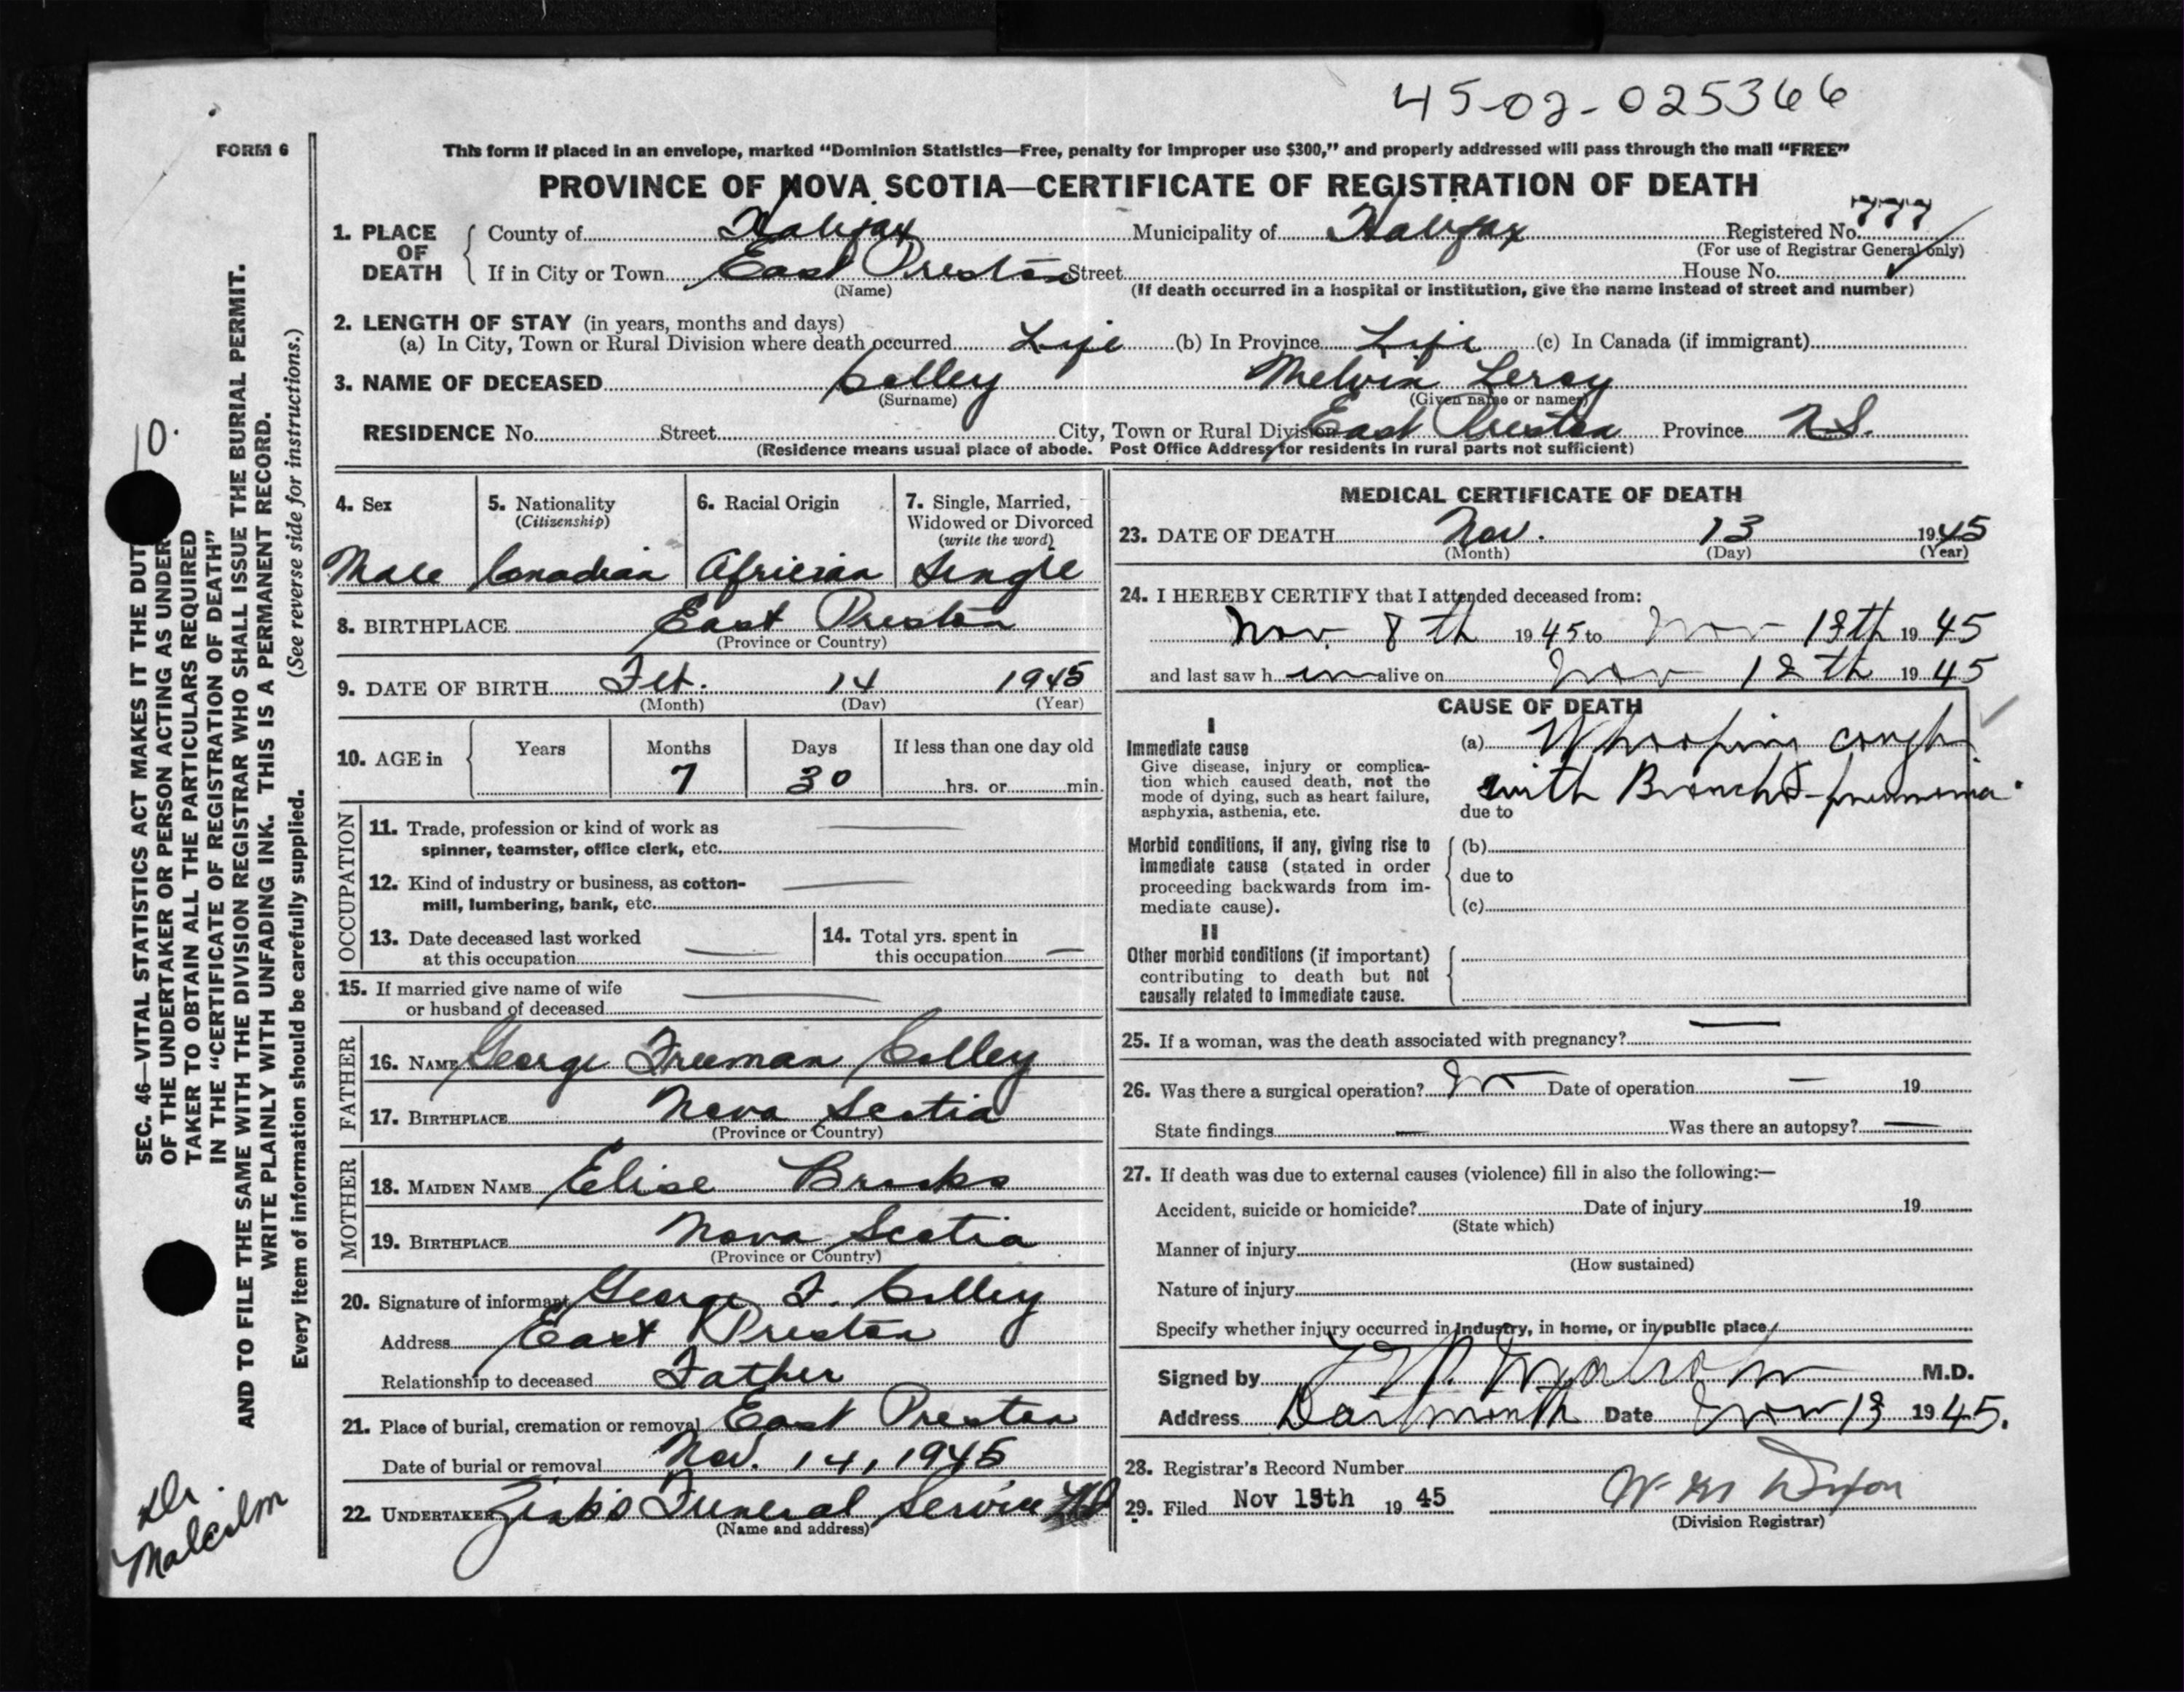 45-02-025366
FORM 6
This form if placed in an envelope, marked “Dominion Statistics—Free, penalty for improper use $300,” and properly addressed will pass through the mail “FREE”
PROVINCE OF NOVA SCOTIA—CERTIFICATE OF REGISTRATION OF DEATH
1. PLACE OF DEATH { County of Halifax Municipality of Halifax Registered No. 777
(For use of Registrar General only)
If in City or Town East Preston Street House No.
(Name) (If death occurred in a hospital or institution, give the name instead of street and number)
2. LENGTH OF STAY (in years, months and days)
(a) In City, Town or Rural Division where death occurred Life (b) In Province Life (c) In Canada (if immigrant)
3. NAME OF DECEASED Colley Melvin Leroy
(Surname) (Given name or names)
RESIDENCE No. Street City, Town or Rural Division East Preston Province N.S.
(Residence means usual place of abode. Post Office Address for residents in rural parts not sufficient)
4. Sex 5. Nationality (Citizenship) 6. Racial Origin 7. Single, Married, Widowed or Divorced (write the word)
Male Canadian Africian Single
8. BIRTHPLACE East Preston
(Province or Country)
9. DATE OF BIRTH Feb. 14 1945
(Month) (Day) (Year)
10. AGE in { Years Months Days If less than one day old
7 30 hrs. or min.
OCCUPATION
11. Trade, profession or kind of work as
spinner, teamster, office clerk, etc.
12. Kind of industry or business, as cotton-
mill, lumbering, bank, etc.
13. Date deceased last worked
at this occupation
14. Total yrs. spent in
this occupation
15. If married give name of wife
or husband of deceased
FATHER
16. NAME George Freeman Colley
17. BIRTHPLACE Nova Scotia
(Province or Country)
MOTHER
18. MAIDEN NAME Elise Brooks
19. BIRTHPLACE Nova Scotia
(Province or Country)
20. Signature of informant George F. Colley
Address East Preston
Relationship to deceased Father
21. Place of burial, cremation or removal East Preston
Date of burial or removal Nov. 14, 1945
22. UNDERTAKER Zink's Funeral Service Ltd
(Name and address)
MEDICAL CERTIFICATE OF DEATH
23. DATE OF DEATH Nov. 13 1945
(Month) (Day) (Year)
24. I HEREBY CERTIFY that I attended deceased from:
Nov. 8th 1945 to Nov 13th 1945
and last saw h im alive on Nov 12th 1945
CAUSE OF DEATH
I
Immediate cause
Give disease, injury or complica-
tion which caused death, not the
mode of dying, such as heart failure,
asphyxia, asthenia, etc.
(a) Whooping cough
with Broncho-pneumonia.
due to
Morbid conditions, if any, giving rise to
immediate cause (stated in order
proceeding backwards from im-
mediate cause).
(b)
due to
(c)
II
Other morbid conditions (if important)
contributing to death but not
causally related to immediate cause.
25. If a woman, was the death associated with pregnancy?
26. Was there a surgical operation? No Date of operation 19
State findings Was there an autopsy?
27. If death was due to external causes (violence) fill in also the following:—
Accident, suicide or homicide? Date of injury 19
(State which)
Manner of injury
(How sustained)
Nature of injury
Specify whether injury occurred in industry, in home, or in public place
Signed by Malcolm M.D.
Address Dartmouth Date Nov 13 1945.
28. Registrar's Record Number
29. Filed Nov 15th 19 45 W. Dixon
(Division Registrar)
10.
SEC. 46—VITAL STATISTICS ACT MAKES IT THE DUT
OF THE UNDERTAKER OR PERSON ACTING AS UNDER-
TAKER TO OBTAIN ALL THE PARTICULARS REQUIRED
IN THE “CERTIFICATE OF REGISTRATION OF DEATH”
AND TO FILE THE SAME WITH THE DIVISION REGISTRAR WHO SHALL ISSUE THE BURIAL PERMIT.
WRITE PLAINLY WITH UNFADING INK. THIS IS A PERMANENT RECORD.
Every item of information should be carefully supplied. (See reverse side for instructions.)
Dr.
Malcolm